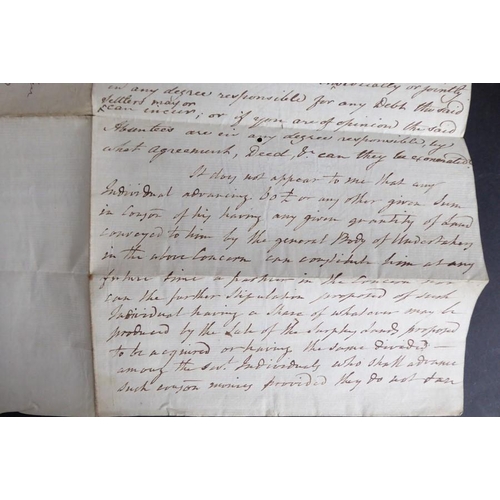 severally or jointly
in any degree responsible for any Debts the said
Settlers may or
can incur, or if you are of opinion the said
Absentees are in any degree responsible by
what Agreement, Deed, &c can they be exonerated
It does not appear to me that any
Individual advancing 50£ or any other given Sum
in Conson of his having any given quantity of Land
conveyed to him by the general Body of Undertakers
in the above Concern can constitute him at any
future time a partner in the Concern nor
can the further Stipulation proposed of such
Individual having a Share of whatever may be
produced by the Sale of the Surplus Lands proposed
to be acquired or having the same divided
among the sevl Individuals who shall advance
such conson money provided they do not